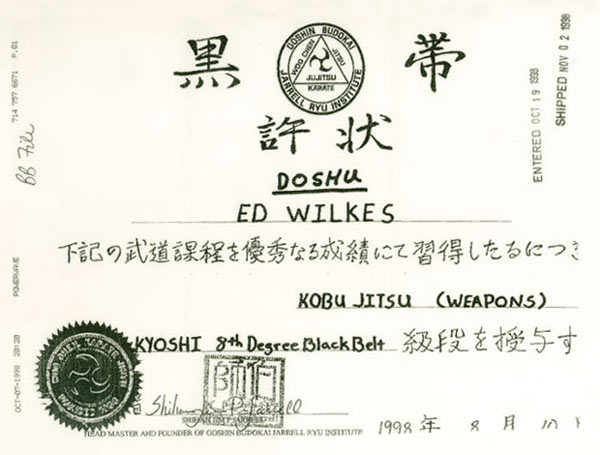 黒 帯
GOSHIN BUDOKAI
JARRELL RYU INSTITUTE
WOO CHEN
JITSU
JUJITSU
KARATE
許 状
DOSHU
ED WILKES
下記の武道課程を優秀なる成績にて習得したるにつき
KOBU JITSU (WEAPONS)
KYOSHI 8th Degree Black Belt 級段を授与す
師伯
HEAD MASTER AND FOUNDER OF GOSHIN BUDOKAI JARRELL RYU INSTITUTE
1998 年 8 月 10
714 757 6671 P.01
BB File
POWERWAVE
OCT-07-1998 20:20
ENTERED OCT 19 1998
SHIPPED NOV 02 1998